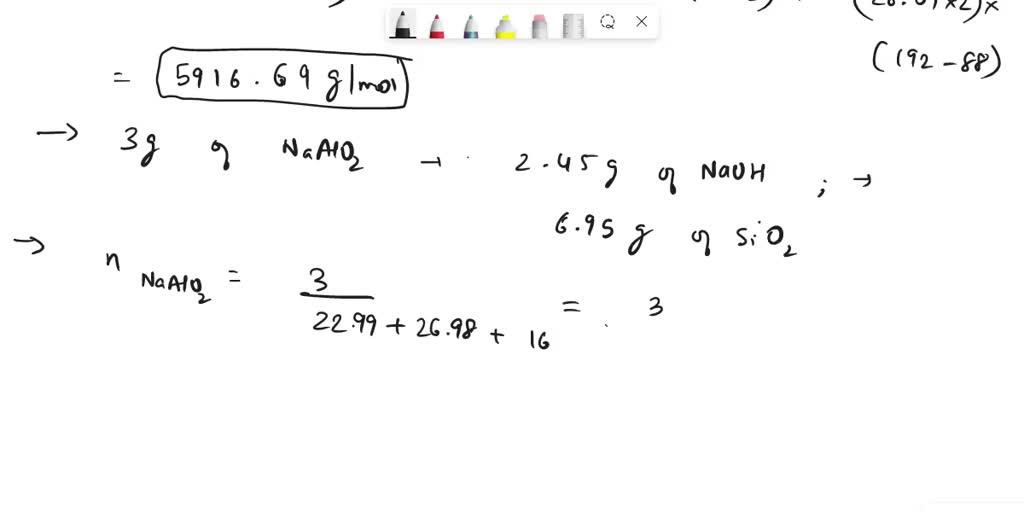 (28.09×2)×
= 5916.69 g/mol (192-88)
→ 3g of NaAlO2 → 2.45g of NaOH ; →
6.95 g of SiO2
→ n NaAlO2 = 3 / 22.99 + 26.98 + 16 = 3